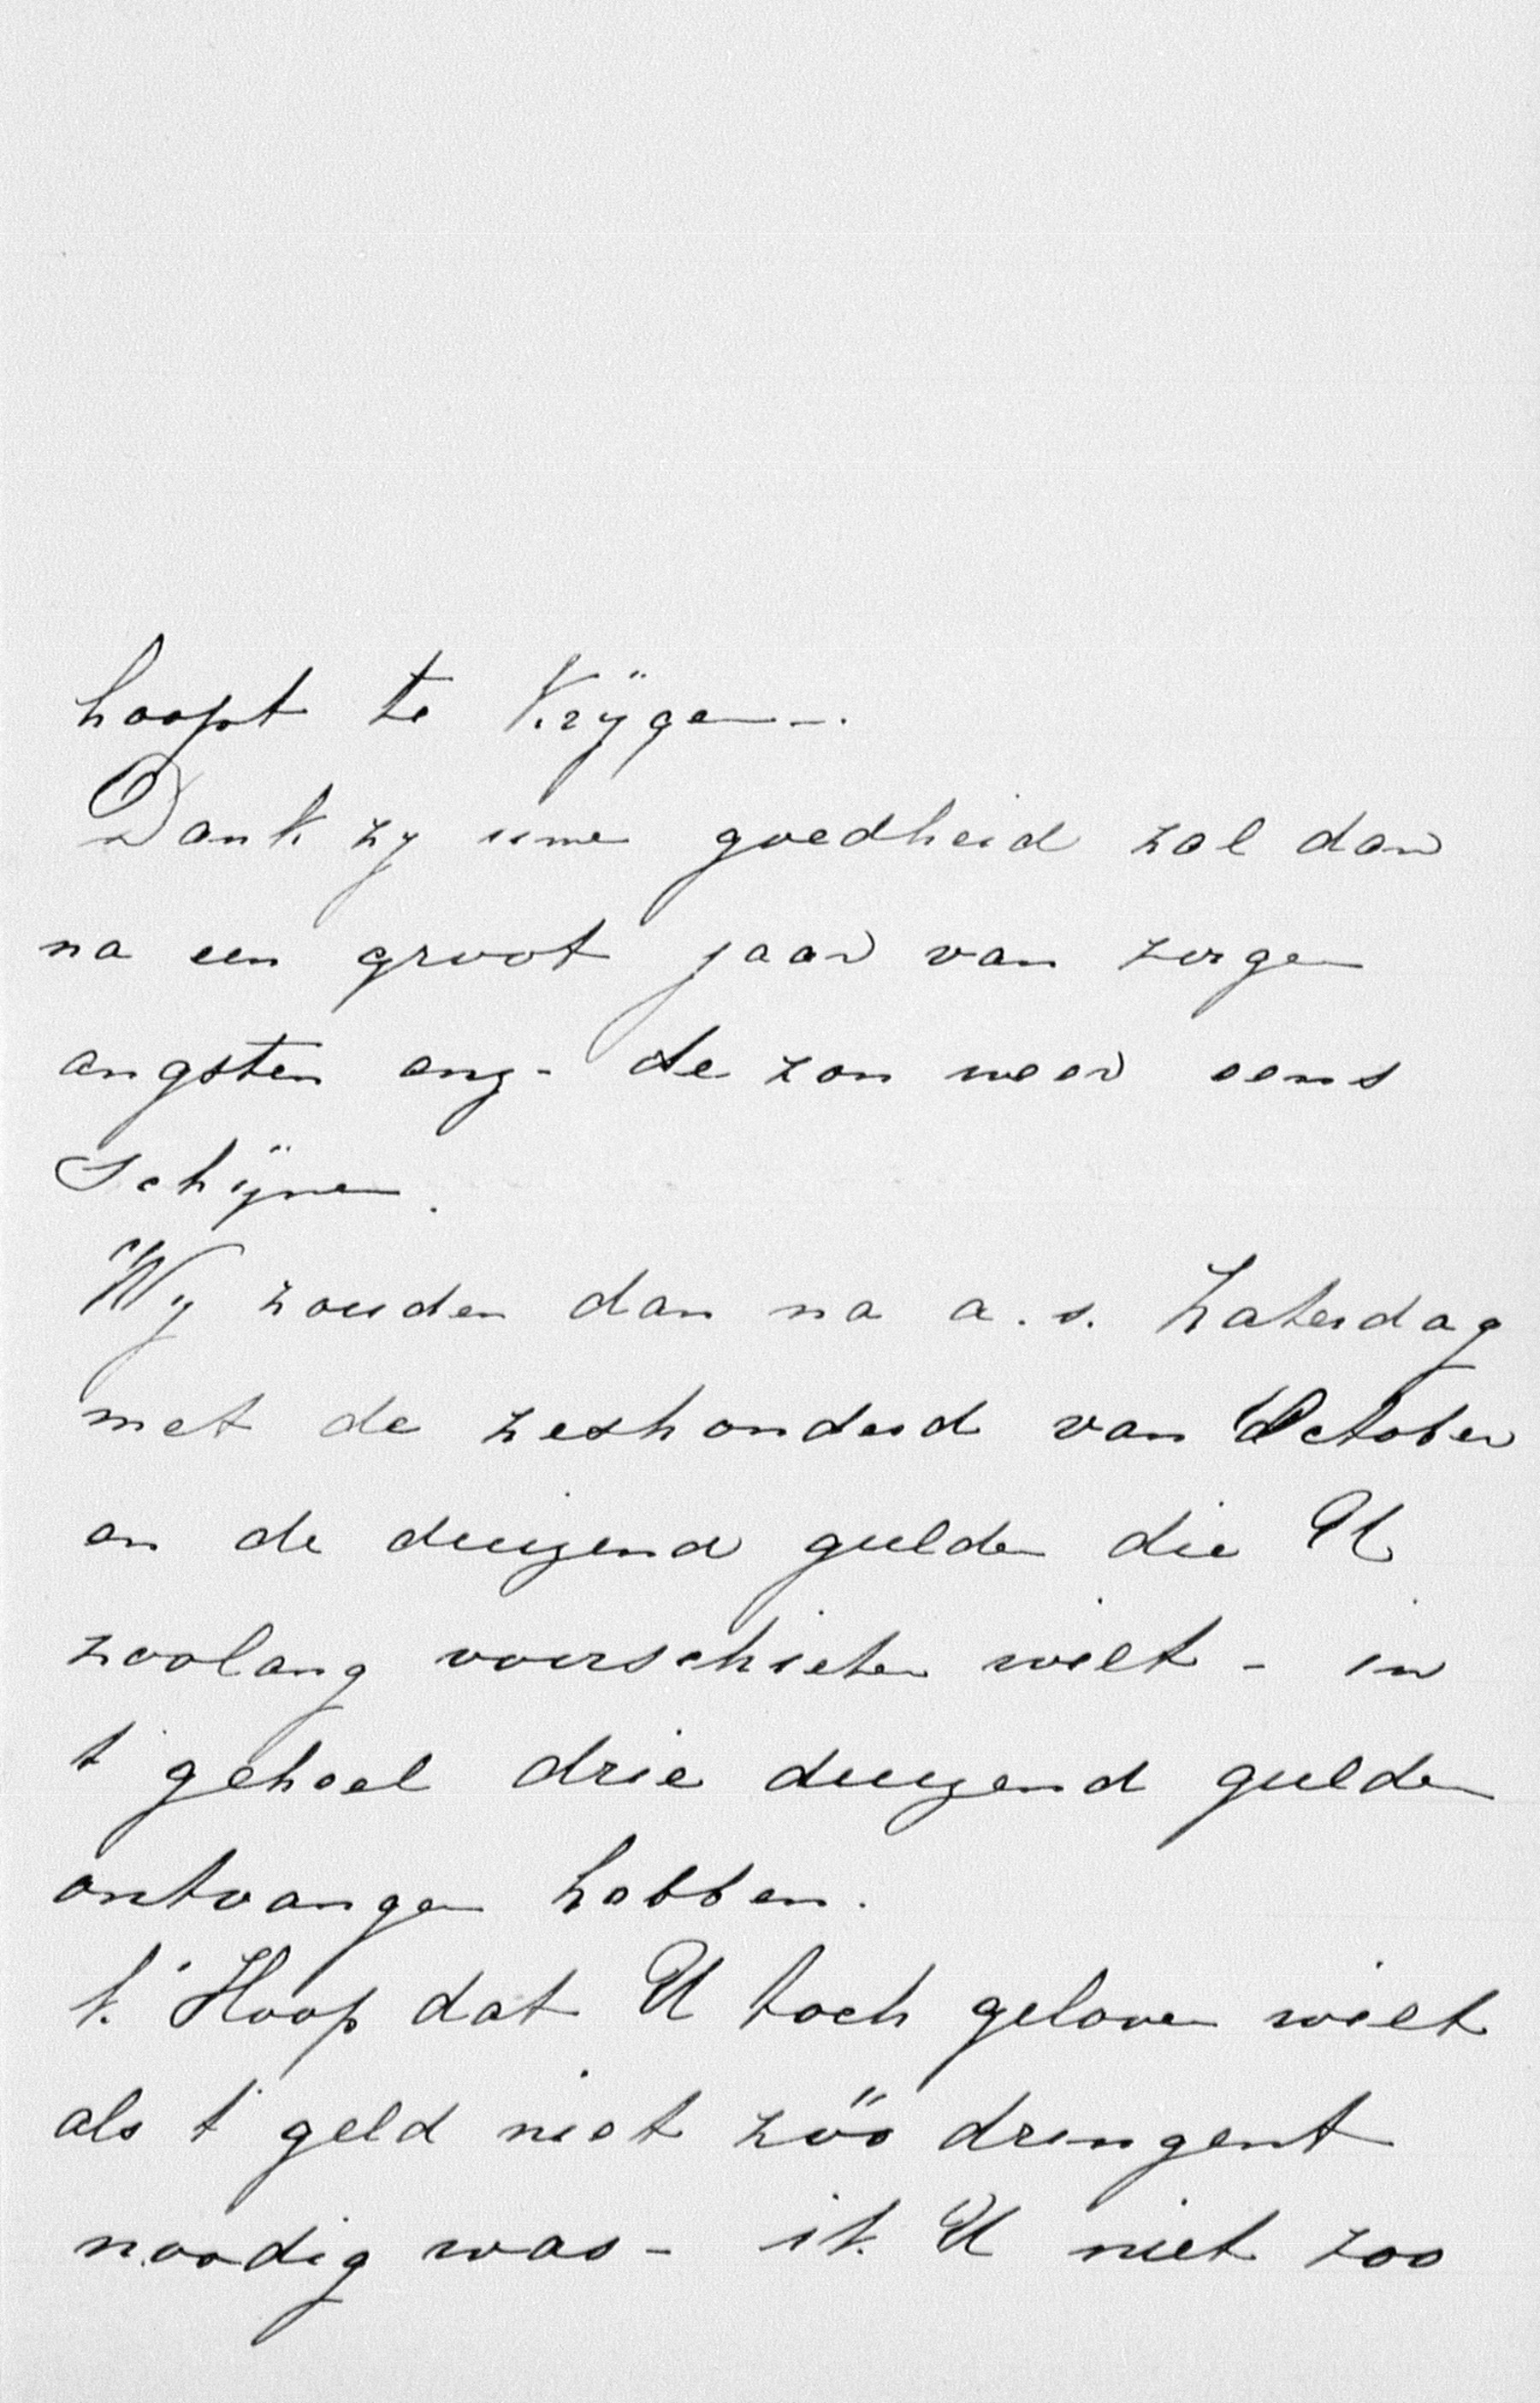 hoopt te Krÿgen-.
Dank zy uwe goedheid zal dan
na een groot jaar van zorgen
angsten enz- de zon weer eens
schÿnen.
Wy zouden dan na a.s. Zaterdag
met de zeshonderd van October
en de duizend gulden die U
zoolang voorschieten wilt - in
t' geheel drie duizend gulden
ontvangen hebben.
k' Hoop dat U toch geloven wilt
als t' geld niet zöo dringent
noodig was - ik U niet zoo